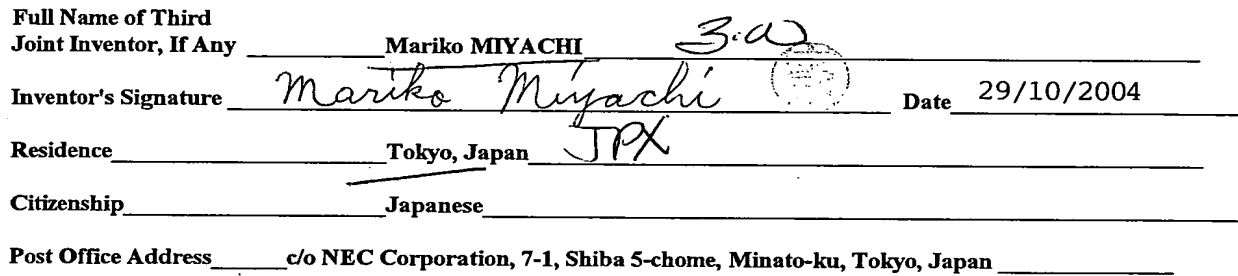 Full Name of Third
Joint Inventor, If Any Mariko MIYACHI 3-00
Inventor's Signature Mariko Miyachi Date 29/10/2004
Residence Tokyo, Japan JPX
Citizenship Japanese
Post Office Address c/o NEC Corporation, 7-1, Shiba 5-chome, Minato-ku, Tokyo, Japan